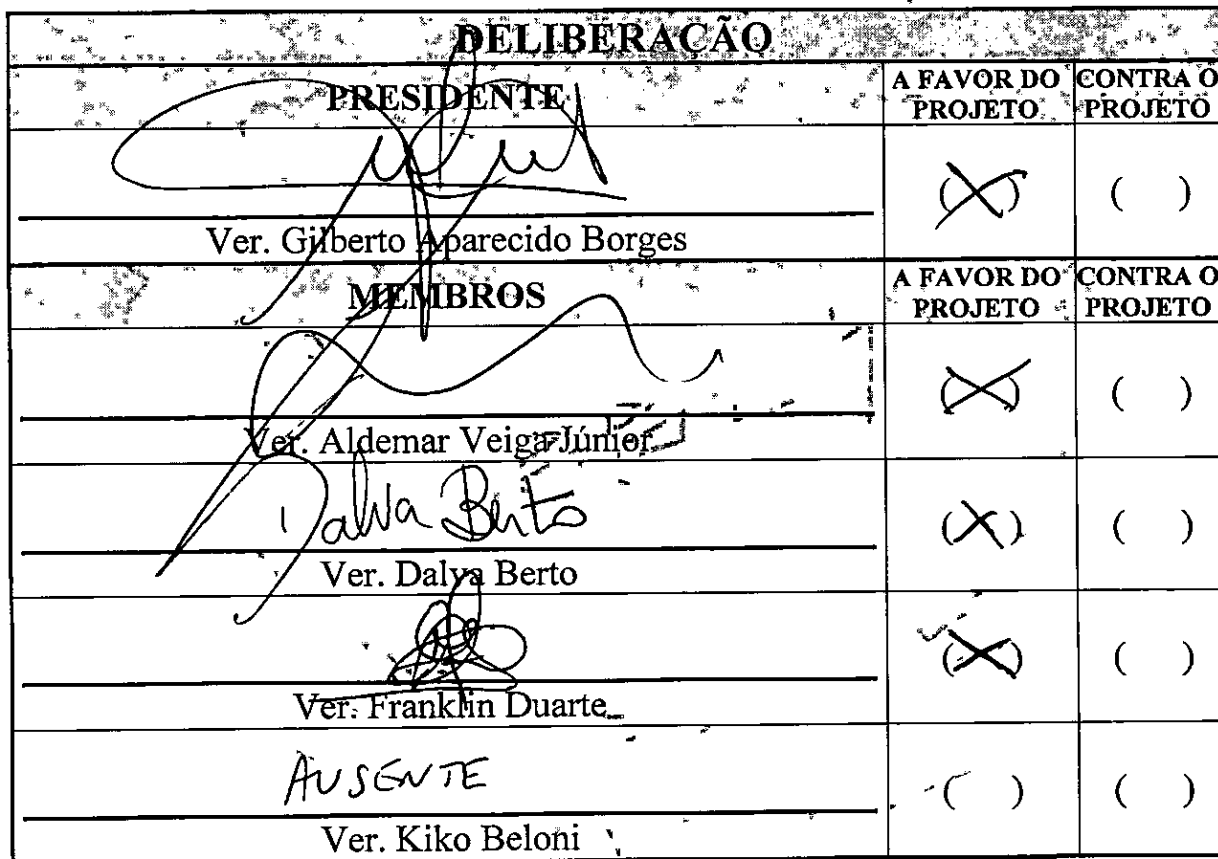 DELIBERAÇÃO
PRESIDENTE A FAVOR DO PROJETO CONTRA O PROJETO
(X) ( )
Ver. Gilberto Aparecido Borges
MEMBROS A FAVOR DO PROJETO CONTRA O PROJETO
(X) ( )
Ver. Aldemar Veiga Júnior
Dalva Berto (X) ( )
Ver. Dalva Berto
(X) ( )
Ver. Franklin Duarte
AUSENTE ( ) ( )
Ver. Kiko Beloni